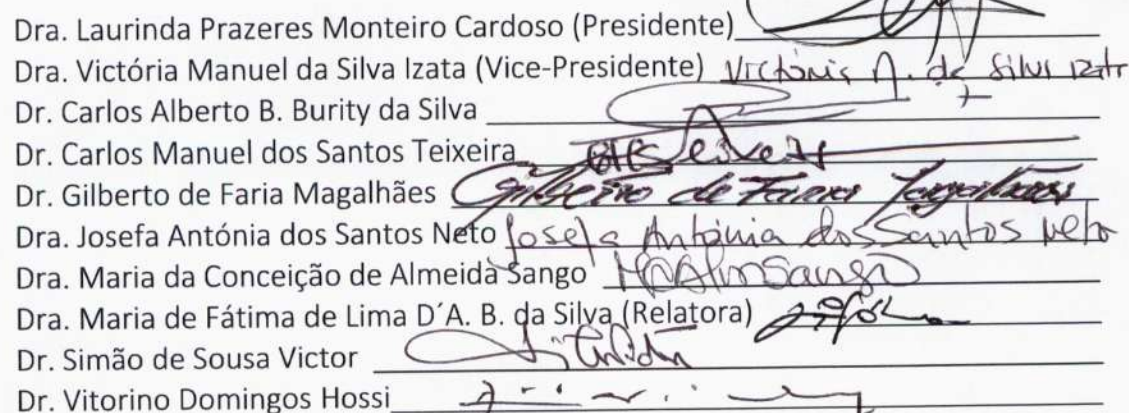 Dra. Laurinda Prazeres Monteiro Cardoso (Presidente)
Dra. Victória Manuel da Silva Izata (Vice-Presidente) Victória M. da Silva Izata
Dr. Carlos Alberto B. Burity da Silva
Dr. Carlos Manuel dos Santos Teixeira
Dr. Gilberto de Faria Magalhães Gilberto de Faria Magalhães
Dra. Josefa Antónia dos Santos Neto Josefa Antónia dos Santos Neto
Dra. Maria da Conceição de Almeida Sango
Dra. Maria de Fátima de Lima D´A. B. da Silva (Relatora)
Dr. Simão de Sousa Victor
Dr. Vitorino Domingos Hossi